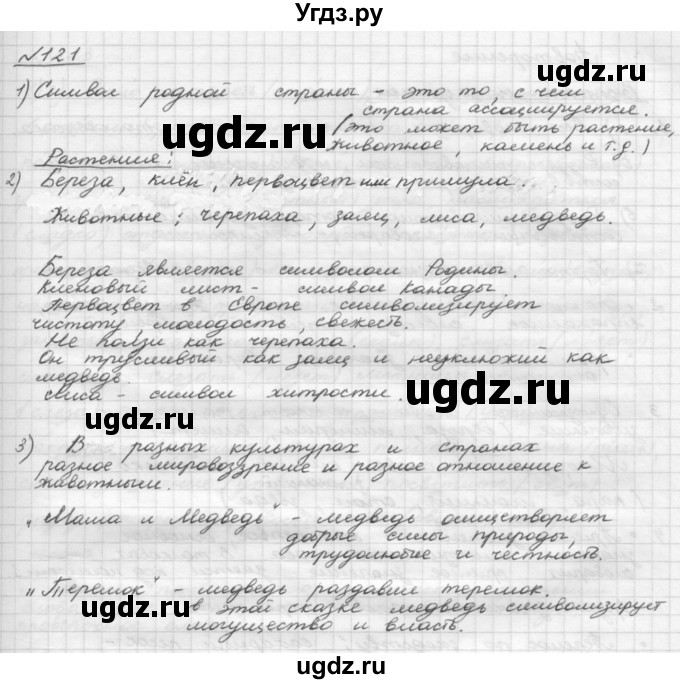 Угдз.ру
№121
1) Символ родной страны - это то, с чем
страна ассоциируется.
(это может быть растение,
животное, камень и т.д.)
ugdz.ru
ugdz.ru
Растение:
2) Береза, клён, первоцвет или примула.
Животные: черепаха, заяц, лиса, медведь.
ugdz.ru
ugdz.ru
Береза является символом Родины.
Кленовый лист - символ Канады.
Первоцвет в Европе символизирует
чистоту, молодость, свежесть.
Не ползи как черепаха.
Он трусливый как заяц и неуклюжий как
медведь.
Лиса - символ хитрости.
ugdz.ru
ugdz.ru
3) В разных культурах и странах
разное мировоззрение и разное отношение к
животным.
ugdz.ru
ugdz.ru
„Маша и Медведь" - медведь олицетворяет
добрые силы природы,
трудолюбие и честность.
„Теремок" - медведь раздавил теремок.
в этой сказке медведь символизирует
могущество и власть.
ugdz.ru
ugdz.ru
ugdz.ru